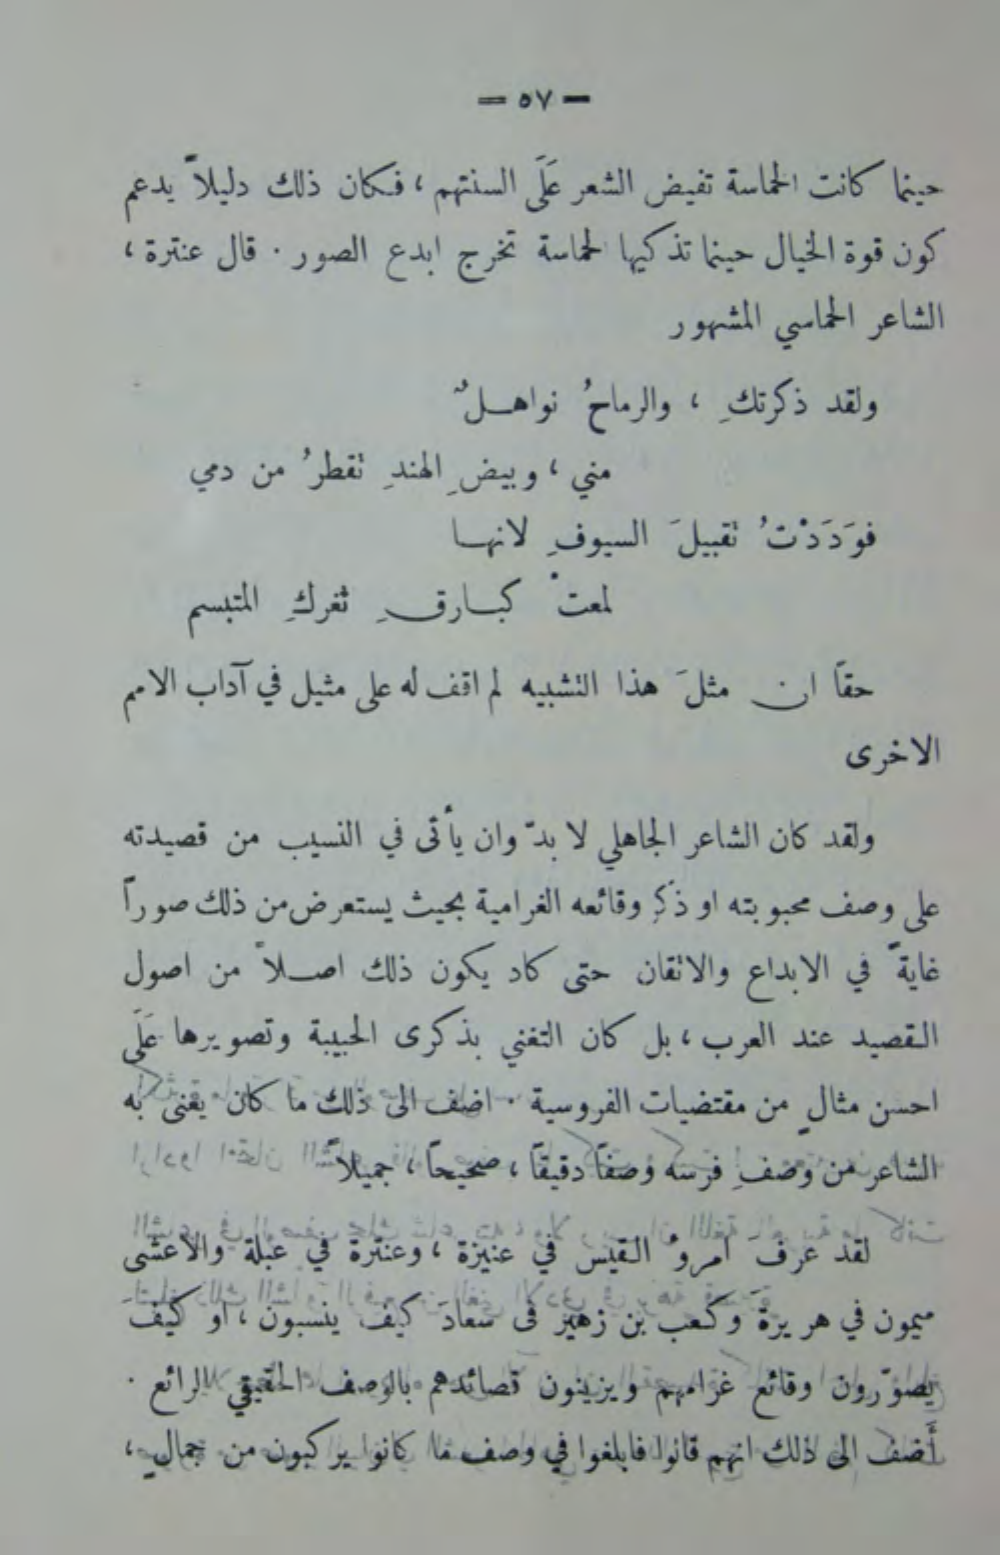 — ٥٧ —
حينما كانت الحماسة تفيض الشعر عَلَى السنتهم ، فكان ذلك دليلاً يدعم
كون قوة الخيال حينما تذكيها لحماسة تخرج ابدع الصور · قال عنترة ،
الشاعر الحماسي المشهور
ولقد ذكرتكِ ، والرماحُ نواهلٌ
مني ، وبيضِ الهندِ تقطرُ من دمي
فوَدَدْتُ تقبيلَ السيوفِ لانها
لمعتْ كبارقِ ثغركِ المتبسم
حقاً ان مثلَ هذا التشبيه لم اقف له على مثيل في آداب الامم
الاخرى
ولقد كان الشاعر الجاهلي لا بدّ وان يأتى في النسيب من قصيدته
على وصف محبوبته او ذَكِر وقائعه الغرامية بحيث يستعرض من ذلك صوراً
غايةً في الابداع والاتقان حتى كاد يكون ذلك اصلاً من اصول
القصيد عند العرب ، بل كان التغني بذكرى الحبيبة وتصويرها عَلَى
احسن مثالٍ من مقتضيات الفروسية · اضف الى ذلك ما كان يغنى به
الشاعر من وصفِ فرسه وصفاً دقيقاً ، صحيحاً ، جميلاً
لقد عرف امروُ القيس في عنيزة ، وعنترة في عبلة والاعشى
ميمون في هريرة وكعب بن زهير فى سعادَ كيف ينسبون ، او كيفَ
يصوّرون وقائع غرامهم ويزينون قصائدهم بالوصف الحقيقي الرائع ·
أَضف الى ذلك انهم قالوا فابلغوا في وصف ما كانوا يركبون من جمالٍ ،